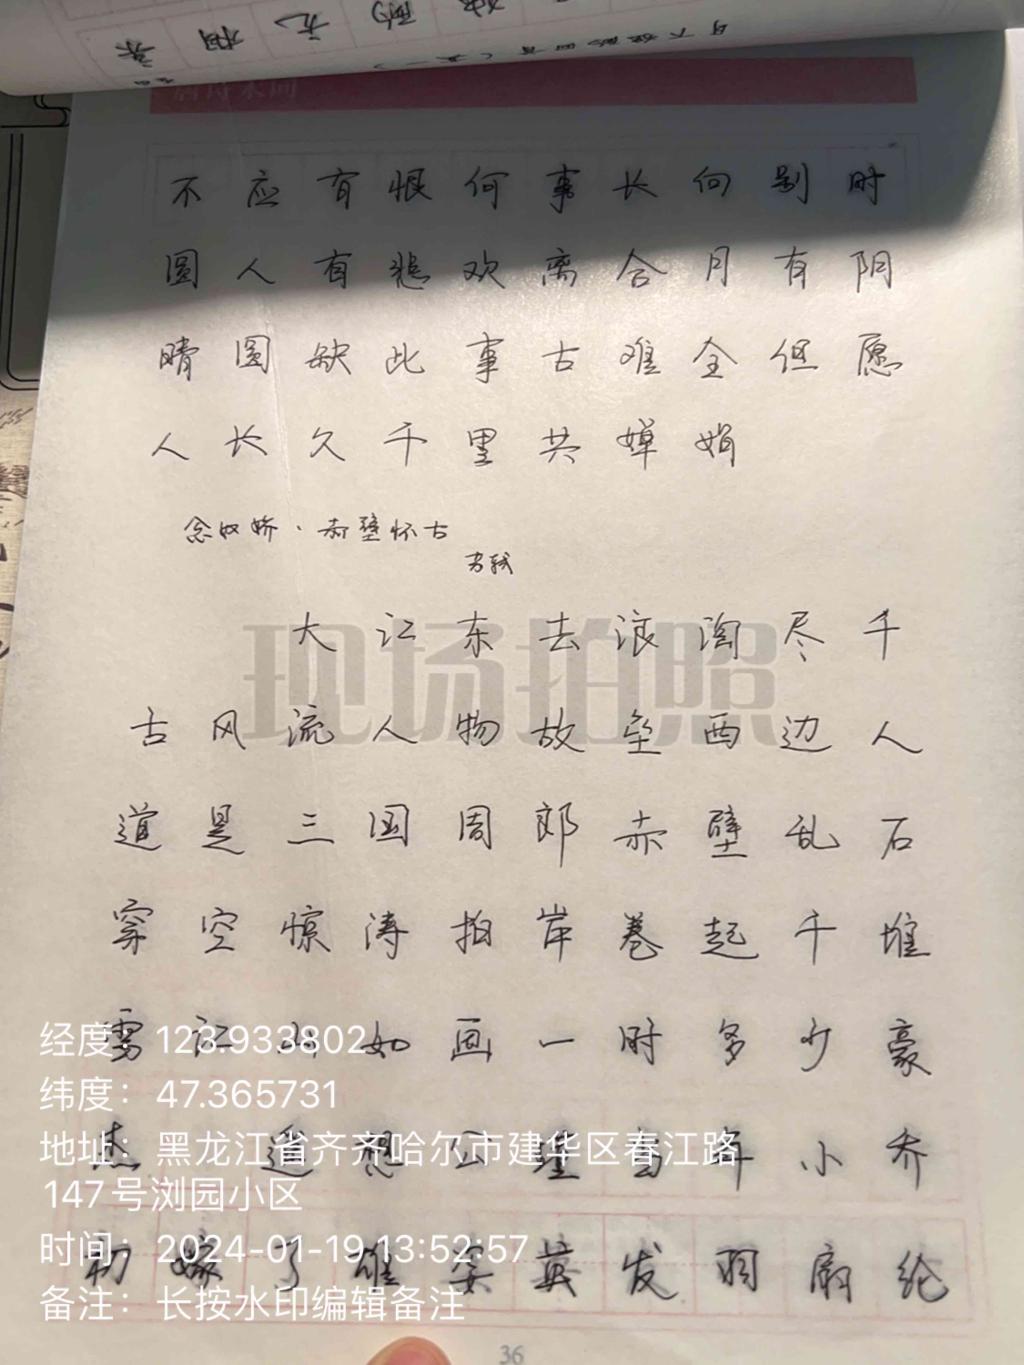 不应有恨何事长向别时
圆人有悲欢离合月有阴
晴圆缺此事古难全但愿
人长久千里共婵娟
念奴娇·赤壁怀古
苏轼
大江东去浪淘尽千
古风流人物故垒西边人
道是三国周郎赤壁乱石
穿空惊涛拍岸卷起千堆
雪江山如画一时多少豪
杰遥想公瑾当年小乔
初嫁了雄姿英发羽扇纶
36
现场拍照
经度：123.933802
纬度：47.365731
地址：黑龙江省齐齐哈尔市建华区春江路
147号浏园小区
时间：2024-01-19 13:52:57
备注：长按水印编辑备注